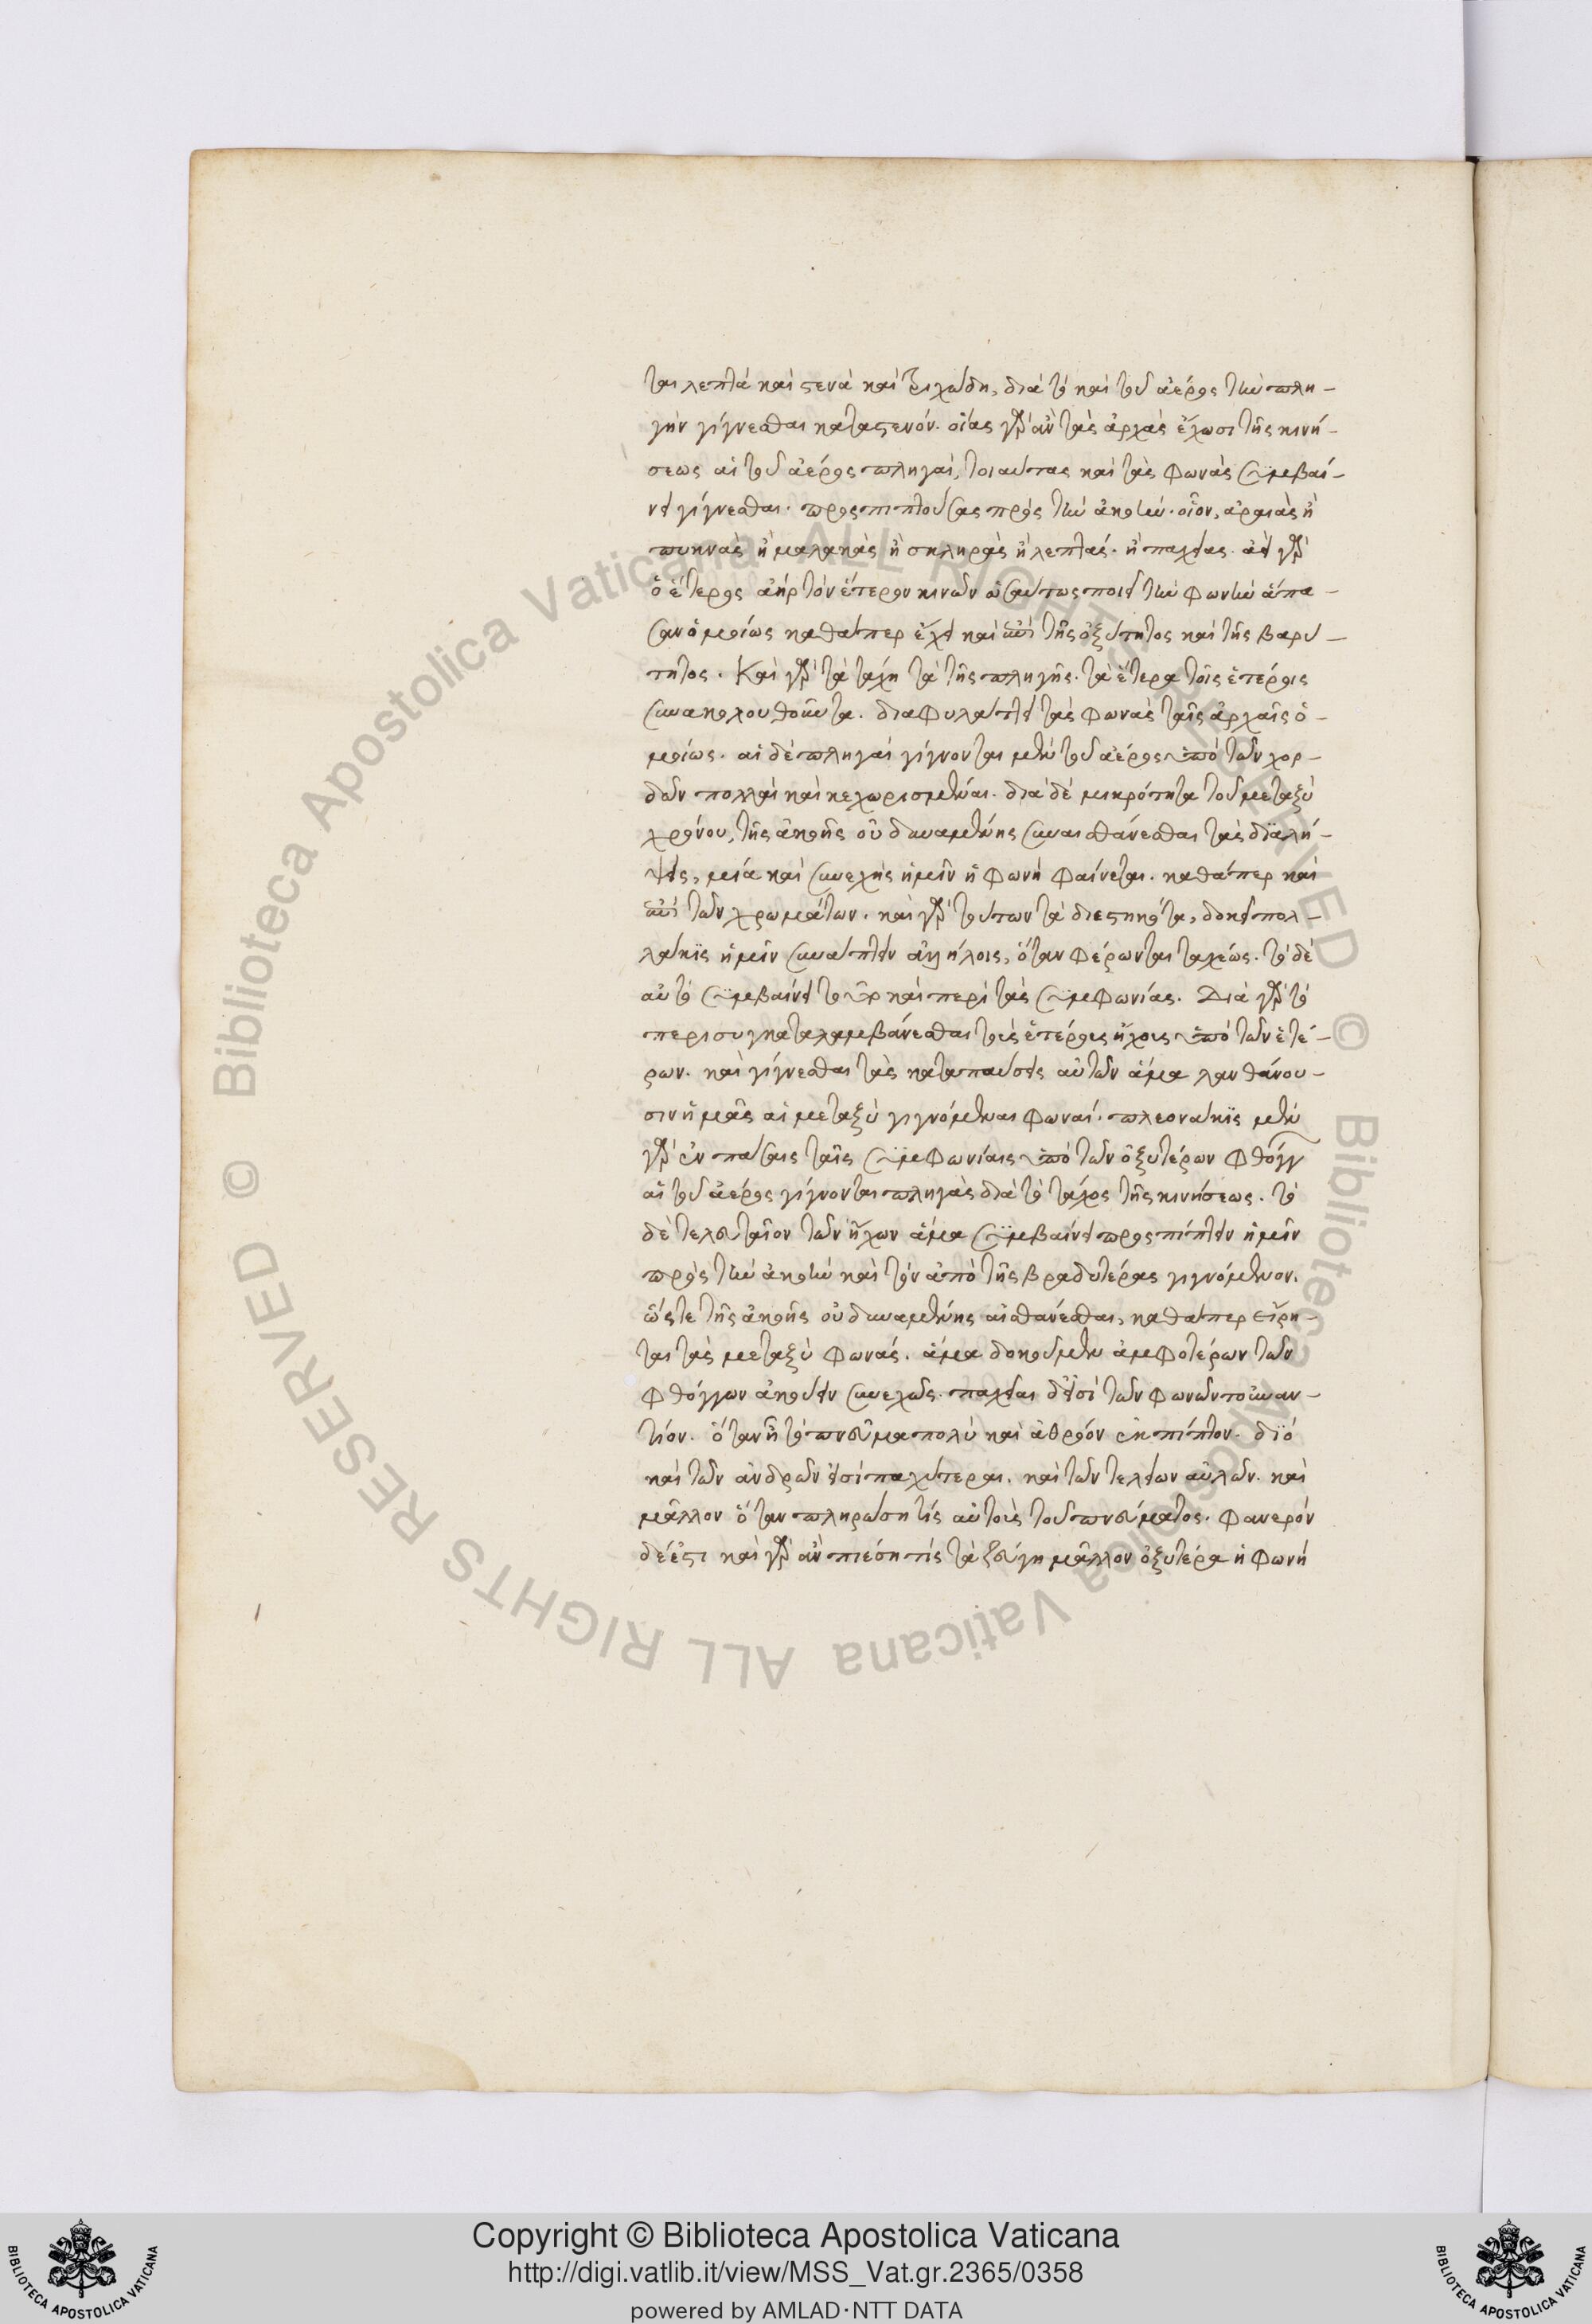 ται λεπτὰ καὶ στενὰ καὶ τριχώδη, διὰ τὸ καὶ τοῦ ἀέρος τὴν πλη-
γὴν γίγνεσθαι κατὰ στενόν. οἵας γὰρ ἂν τὰς ἀρχὰς ἔχωσι τῆς κινή-
σεως αἱ τοῦ ἀέρος πληγαὶ, τοιαύτας καὶ τὰς φωνὰς συμβαί-
νει γίγνεσθαι. προσπιπτούσας πρὸς τὴν ἀκοήν. οἷον, ἀραιὰς ἢ
πυκνὰς ἢ μαλακὰς ἢ σκληρὰς ἢ λεπτὰς. ἢ παχείας. ἀεὶ γὰρ
ὁ ἕτερος ἀὴρ τὸν ἕτερον κινῶν ὡσαύτως ποιεῖ τὴν φωνὴν ἅπα-
σαν ὁμοίως καθάπερ ἔχει καὶ ἐπὶ τῆς ὀξύτητος καὶ τῆς βαρύ-
τητος. Καὶ γὰρ τὰ τάχη τὰ τῆς πληγῆς. τὰ ἕτερα τοῖς ἑτέροις
συνακολουθοῦντα. διαφυλάττει τὰς φωνὰς ταῖς ἀρχαῖς ὁ-
μοίως. αἱ δὲ πληγαὶ γίγνονται μὲν τοῦ ἀέρος ὑπὸ τῶν χορ-
δῶν πολλαὶ καὶ κεχωρισμέναι. διὰ δὲ μικρότητα τοῦ μεταξὺ
χρόνου, τῆς ἀκοῆς οὐ δυναμένης συναισθάνεσθαι τὰς διαλή-
ψεις, μία καὶ συνεχὴς ἡμῖν ἡ φωνὴ φαίνεται. καθάπερ καὶ
ἐπὶ τῶν χρωμάτων. καὶ γὰρ τούτων τὰ διεστηκότα, δοκεῖ πολ-
λάκις ἡμῖν συνάπτειν ἀλλήλοις, ὅταν φέρωνται ταχέως. τὸ δὲ
αὐτὸ συμβαίνει τοῦτο καὶ περὶ τὰς συμφωνίας. Διὰ γὰρ τὸ
περισυγκαταλαμβάνεσθαι τοὺς ἑτέρους ἤχους ὑπὸ τῶν ἑτέ-
ρων. καὶ γίγνεσθαι τὰς καταπαύσεις αὐτῶν ἅμα λανθάνου-
σιν ἡμᾶς αἱ μεταξὺ γιγνόμεναι φωναί. πλεονάκις μὲν
γὰρ ἐν πάσαις ταῖς συμφωνίαις ὑπὸ τῶν ὀξυτέρων φθόγγ
αἱ τοῦ ἀέρος γίγνονται πληγὰς διὰ τὸ τάχος τῆς κινήσεως. τὸ
δὲ τελευταῖον τῶν ἤχων ἅμα συμβαίνει προσπίπτειν ἡμῖν
πρὸς τὴν ἀκοὴν καὶ τὸν ἀπὸ τῆς βραδυτέρας γιγνόμενον.
ὥστε τῆς ἀκοῆς οὐ δυναμένης αἰσθανέσθαι, καθάπερ εἴρη-
ται τὰς μεταξὺ φωνάς. ἅμα δοκοῦμεν ἀμφοτέρων τῶν
φθόγγων ἀκούειν συνεχῶς. παχεῖαι δ' εἰσὶ τῶν φωνῶν τοὐναν-
τίον. ὅταν ᾖ τὸ πνεῦμα πολὺ καὶ ἀθρόον ἐκπίπτον. διὸ
καὶ τῶν ἀνδρῶν εἰσὶ παχύτεραι. καὶ τῶν τελείων αὐλῶν. καὶ
μᾶλλον ὅταν πληρώσῃ τὶς αὐτοὺς τοῦ πνεύματος. φανερὸν
δέ ἐστι καὶ γὰρ ἂν πιέσῃ τὶς τὰ ζεύγη μᾶλλον ὀξυτέρα ἡ φωνὴ
Copyright © Biblioteca Apostolica Vaticana
http://digi.vatlib.it/view/MSS_Vat.gr.2365/0358
powered by AMLAD·NTT DATA